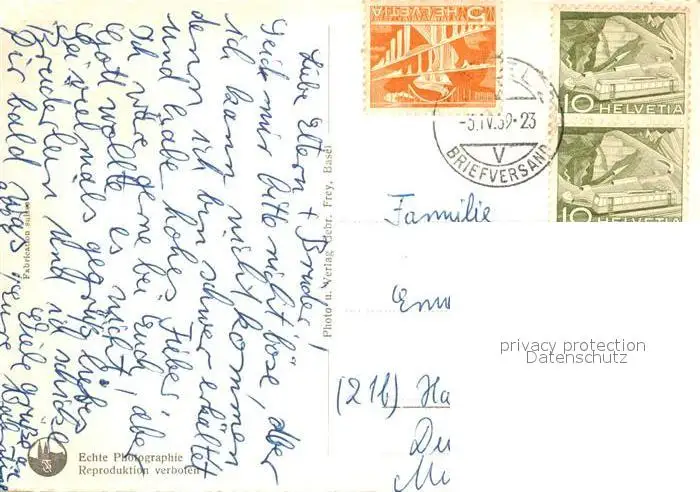 Liebe Eltern + Bruder!
Seid mir bitte nicht böse, aber
ich kann nicht kommen
denn ich bin schwer erkältet
und habe hohes Fieber.
Ich wäre gerne bei Euch, aber
Gott wollte es nicht,
Seid vielmals gegrüßt liebes
Brüderlein und ich schicke
Dir bald was
Viele Grüße an
Photo u. Verlag Gebr. Frey, Basel
Fabrication suisse
Echte Photographie
Reproduktion verboten
5
HELVETIA
10 HELVETIA
10 HELVETIA
-3.IV.59-23
V
BRIEFVERSAND
Familie
(21b) Ha
privacy protection
Datenschutz